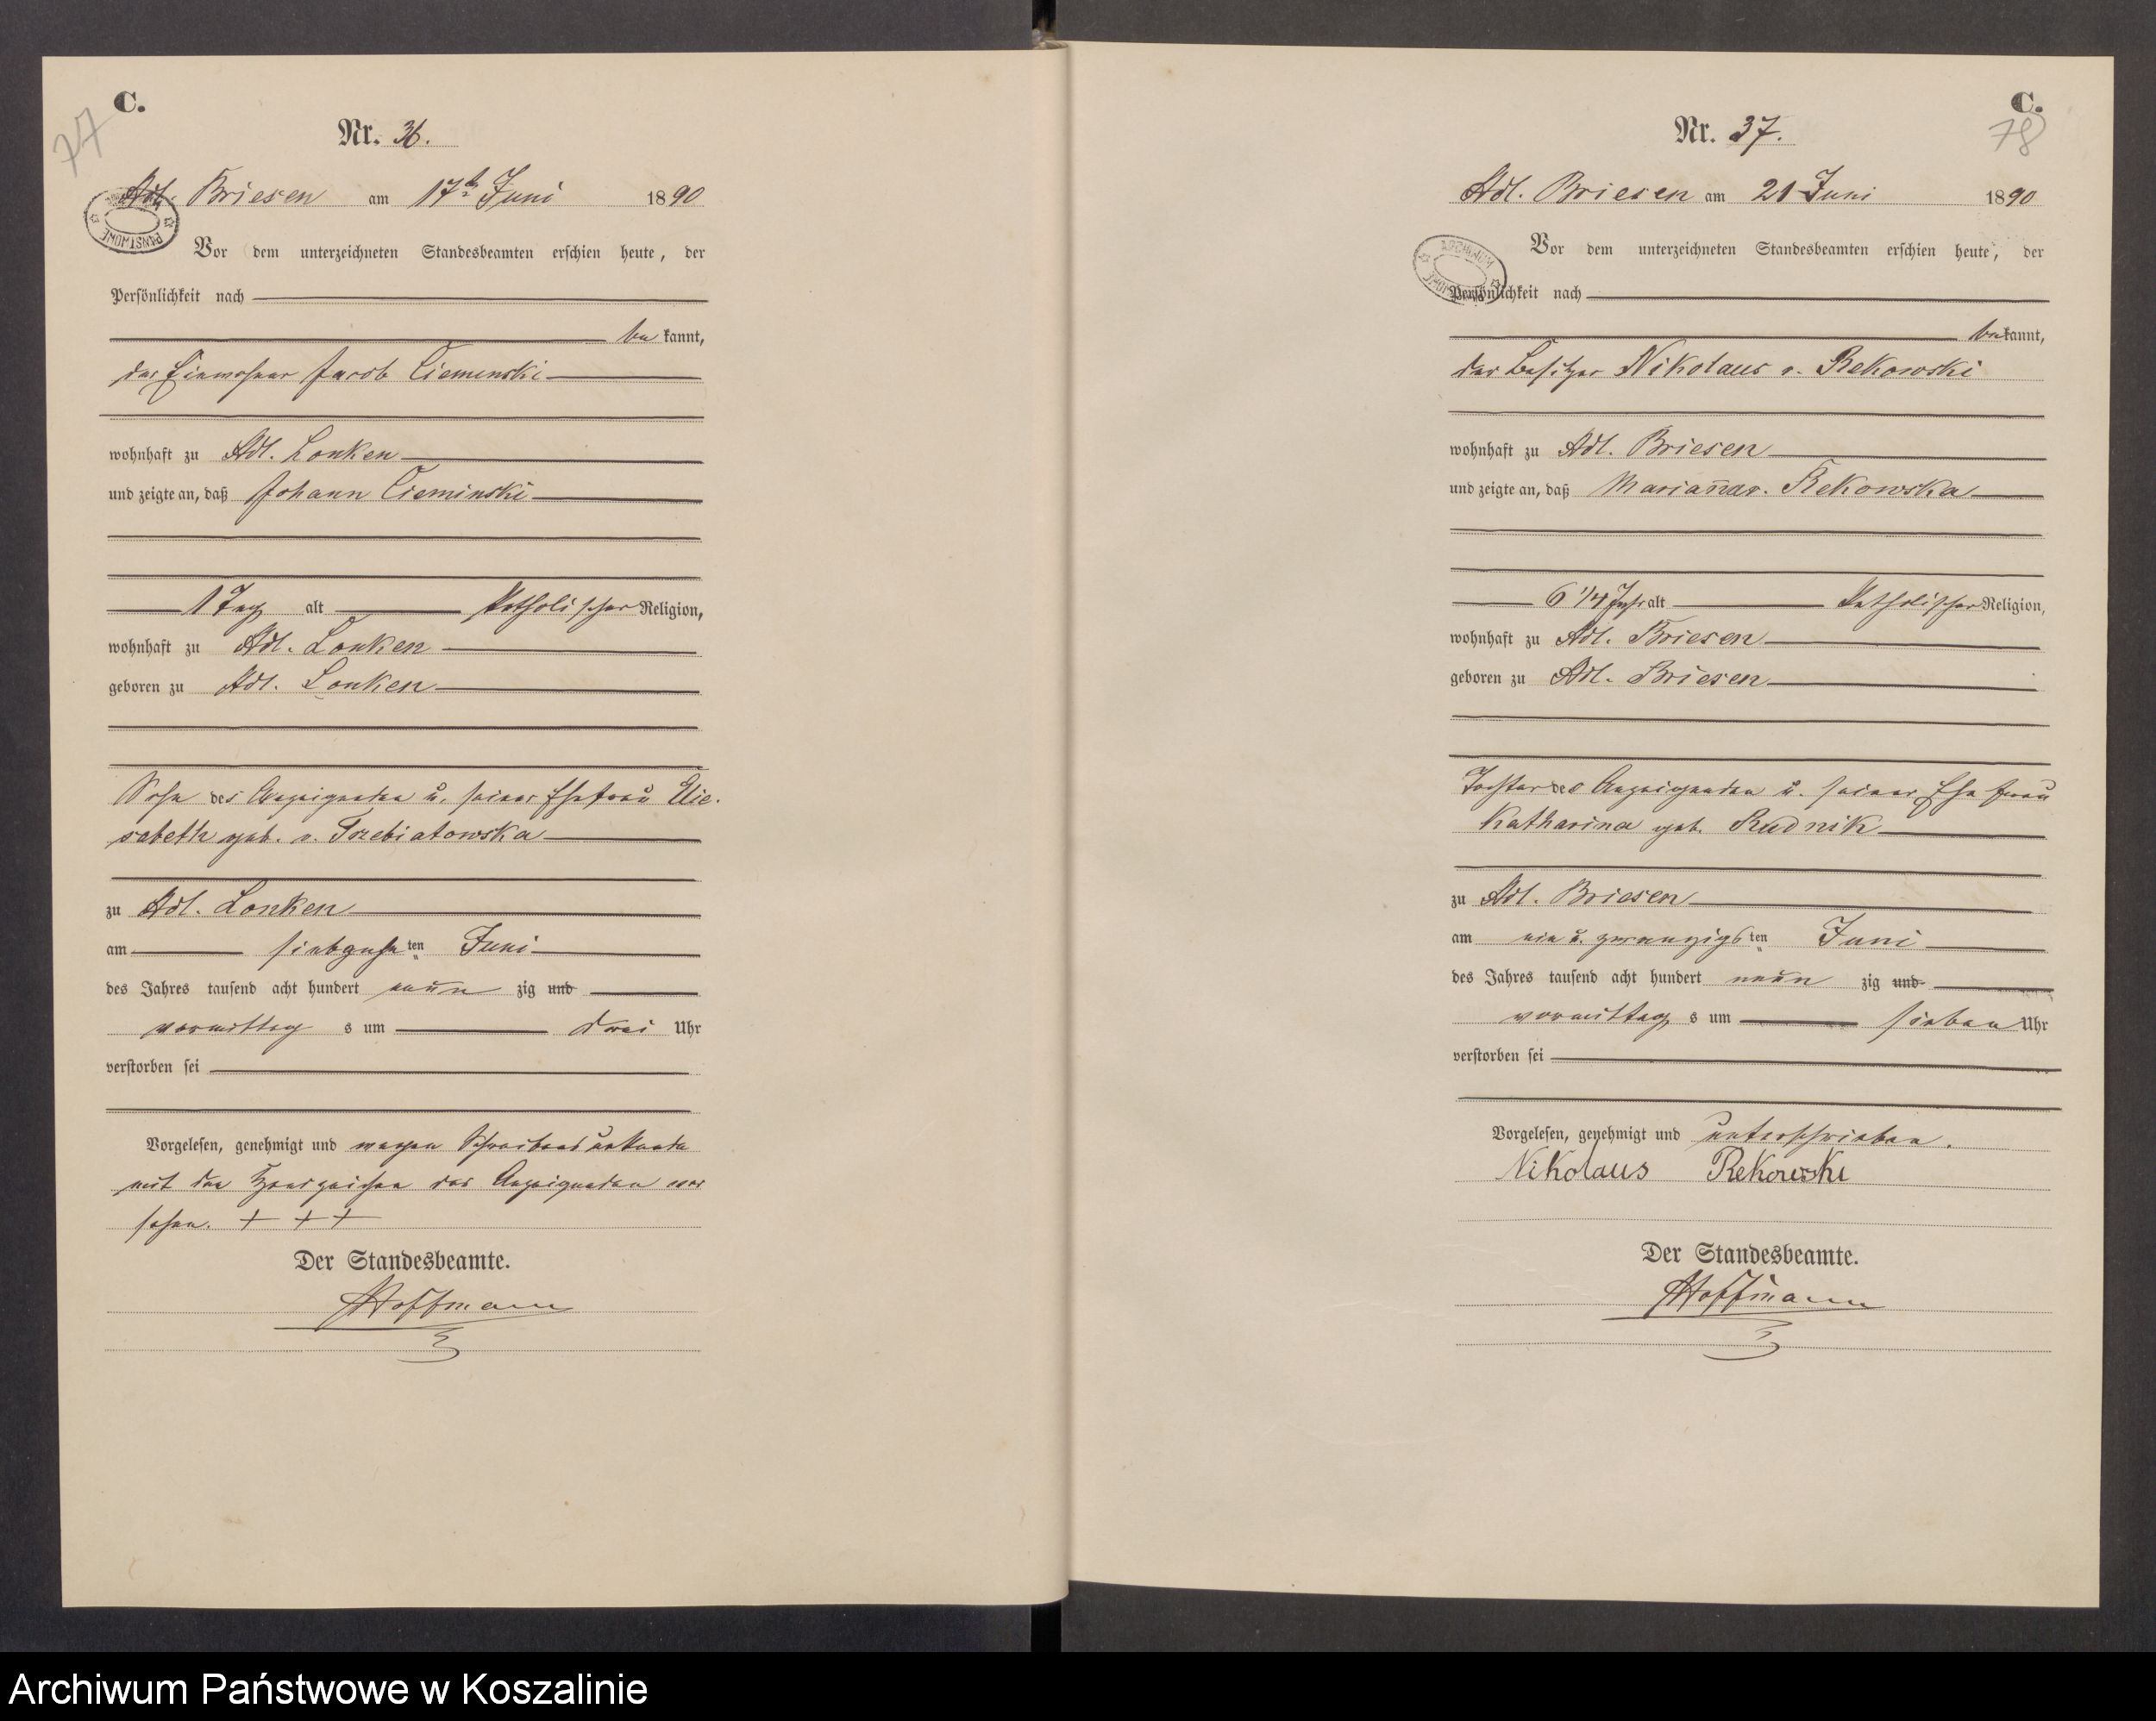 C.
77
Nr. 36.
Adl. Briesen am 17ten Juni 1890
Vor dem unterzeichneten Standesbeamten erschien heute, der
Persönlichkeit nach
be kannt,
der Einwohner Jacob Cieminski
wohnhaft zu Adl. Lonken
und zeigte an, daß Johann Cieminski
1 Tag alt katholischer Religion,
wohnhaft zu Adl. Lonken
geboren zu Adl. Lonken
Sohn des Anzeigenden u. seiner Ehefrau Elie-
sabeth geb. v. Trzebiatowska
zu Adl. Lonken
am siebzehn ten Juni
des Jahres tausend acht hundert neun zig und
vormittag s um drei Uhr
verstorben sei
Vorgelesen, genehmigt und wegen Schreibensunkunde
mit den Handzeichen des Anzeigenden ver
sehen. + + +
Der Standesbeamte.
Hoffmann
C.
78
Nr. 37.
Adl. Briesen am 21 Juni 1890
Vor dem unterzeichneten Standesbeamten erschien heute, der
Persönlichkeit nach
be kannt,
der Besitzer Nikolaus v. Rekowski
wohnhaft zu Adl. Briesen
und zeigte an, daß Mariana v. Rekowska
6 1/4 Jahr alt katholischer Religion,
wohnhaft zu Adl. Briesen
geboren zu Adl. Briesen
Tochter des Anzeigenden u. seiner Ehefrau
Katharina geb. Rudnik
zu Adl. Briesen
am ein u. zwanzigs ten Juni
des Jahres tausend acht hundert neun zig und
vormittag s um sieben Uhr
verstorben sei
Vorgelesen, genehmigt und unterschrieben.
Nikolaus Rekowski
Der Standesbeamte.
Hoffmann
Archiwum Państwowe w Koszalinie